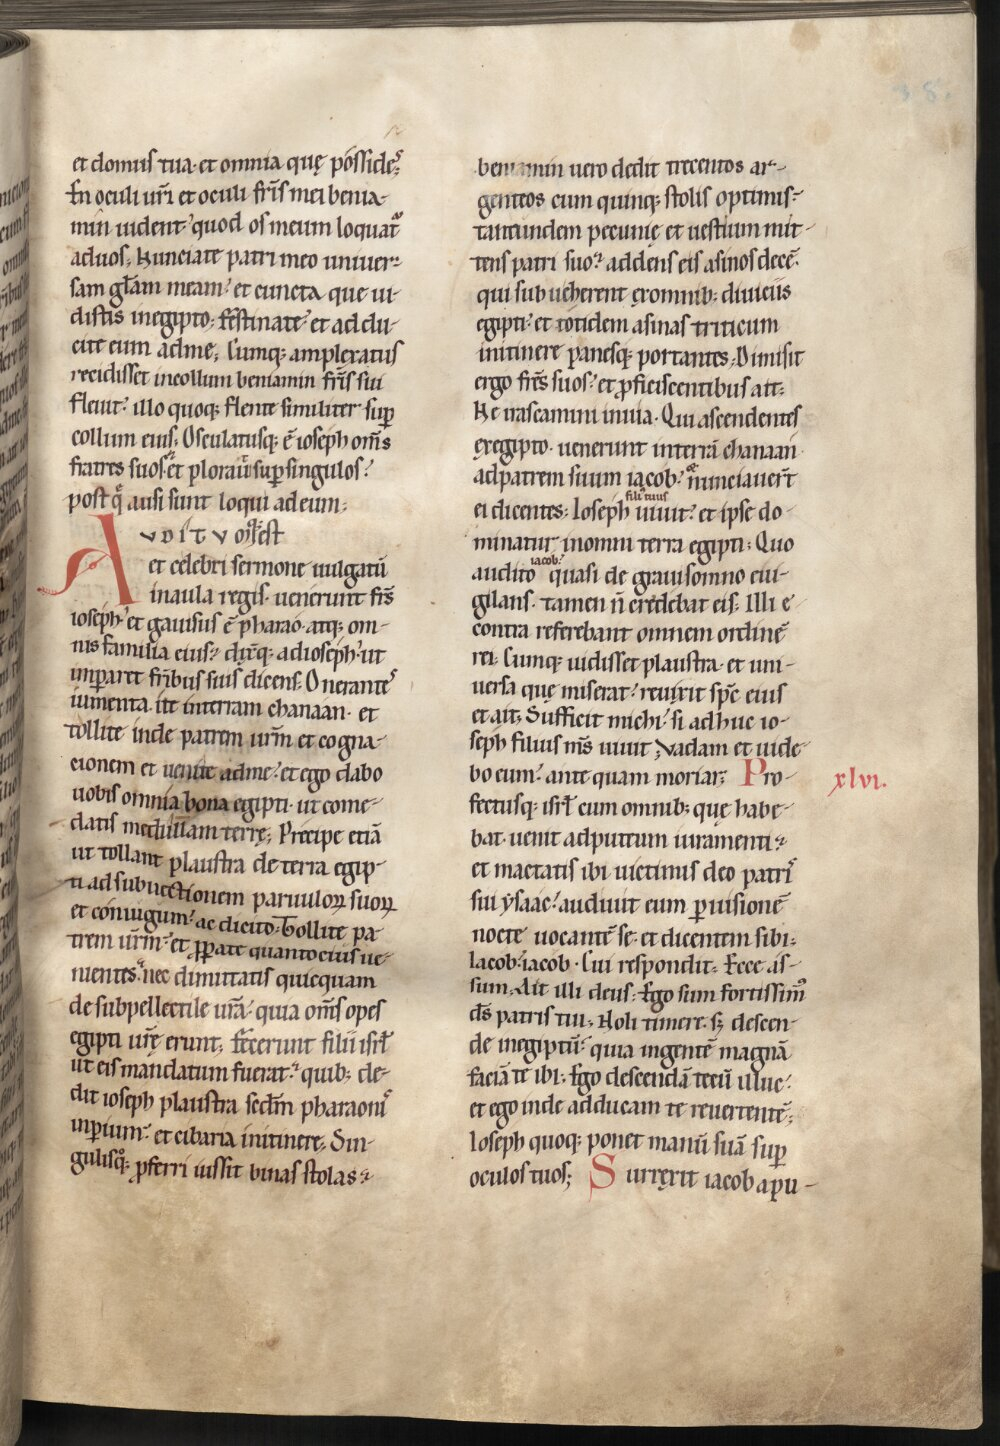 38.
et domus tua· et omnia quę possides̄;
En oculi ur̄i et oculi fr̄is mei benia-
min uident· quod os meum loquat᷑
ad uos; Nunciate patri meo uniuer-
sam gl̄am meam· et cuncta que ui-
distis in egipto; festinate· et ad du-
cite eum ad me; Cumq; amplexatus
recidisset in collum beniamin fr̄is sui
fleuit· illo quoq; flente similiter sup̄
collum eius; Osculatusq; ē ioseph om̄s
fratres suos· et plorauit sup̄ singulos·
post q̄ ausi sunt loqui ad eum;
AVDITVQ; est
et celebri sermone uulgatū
in aula regis· uenerunt fr̄s
ioseph· et gauisus ē pharao· atq; om-
nis familia eius· dix̄q; ad ioseph· ut
imp̄aret fr̄ibus suis dicens; Onerantes
iumenta· ite in terram chanaan· et
tollite inde patrem ur̄m et cogna-
cionem et uenite ad me· et ego dabo
uobis omnia bona egipti· ut come-
datis medullam terrę; Precipe etiā
ut tollant plaustra de terra egip-
ti ad subuectionem paruuloꝝ suoꝝ
et coniugum· ac dicito· Tollite pa-
trem ur̄m· et ꝓꝑate quantocius ue-
nientes· nec dimittatis quicquam
de subpellectile ur̄a· quia om̄s opes
egipti ur̄ę erunt; fecerunt filii isrl̄
ut eis mandatum fuerat· quib; de-
dit ioseph plaustra sedm̄ pharaonis
imp̄ium· et cibaria in itinere; Sin-
gulisq; ꝓferri iussit binas stolas·
beniamin uero dedit trecentos ar-
genteos cum quinq; stolis optimis·
tantundem pecunię et uestium mit-
tens patri suo· addens eis asinos decē·
qui subueherent ex omnib; diuiciis
egipti· et totidem asinas triticum
in itinere panesq; portantes; Dimisit
ergo fr̄es suos· et ꝓficiscentibus ait·
Ne irascamini in uia· Qui ascendentes
ex egipto· uenerunt in terrā chanaan
ad patrem suum iacob· & nunciauer̄t
ei dicentes; Ioseph fili᷒ tuus uiuit· et ipse do-
minatur in omni terra egipti; Quo
audito iacob· quasi de graui somno eui-
gilans· tamen n̄ credebat eis; Illi e
contra referebant omnem ordinē
rei; Cumq; uidisset plaustra· et uni-
uersa quę miserat· reuixit spc̄ eius
et ait; Sufficit michi· si adhuc io-
seph filius m̄s uiuit; Vadam et uide-
bo eum· ante quam moriar; Pro-
xlvi.
fectusq; isrl̄ cum omnib; quę habe-
bat· uenit ad puteum iuramenti·
et mactatis ibi uictimis deo patris
sui ysaac· audiuit eum ꝑ uisionē
nocte uocantē se· et dicentem sibi;
Iacob· iacob· Cui respondit; Ecce as-
sum; Ait illi deus; Ego sum fortissim᷒
ds̄ patris tui; Noli timere· s; descen-
de in egiptū· quia in gentē magnā
faciā te ibi; Ego descendā tecū illuc·
et ego inde adducam te reuertentē;
Ioseph quoq; ponet manū suā sup̄
oculos tuos; Surrexit iacob a pu-